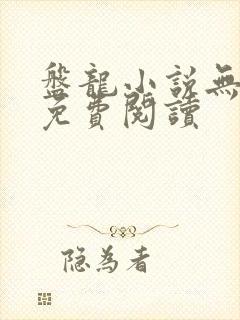 盤龍小說無
免費閱讀
隐為者